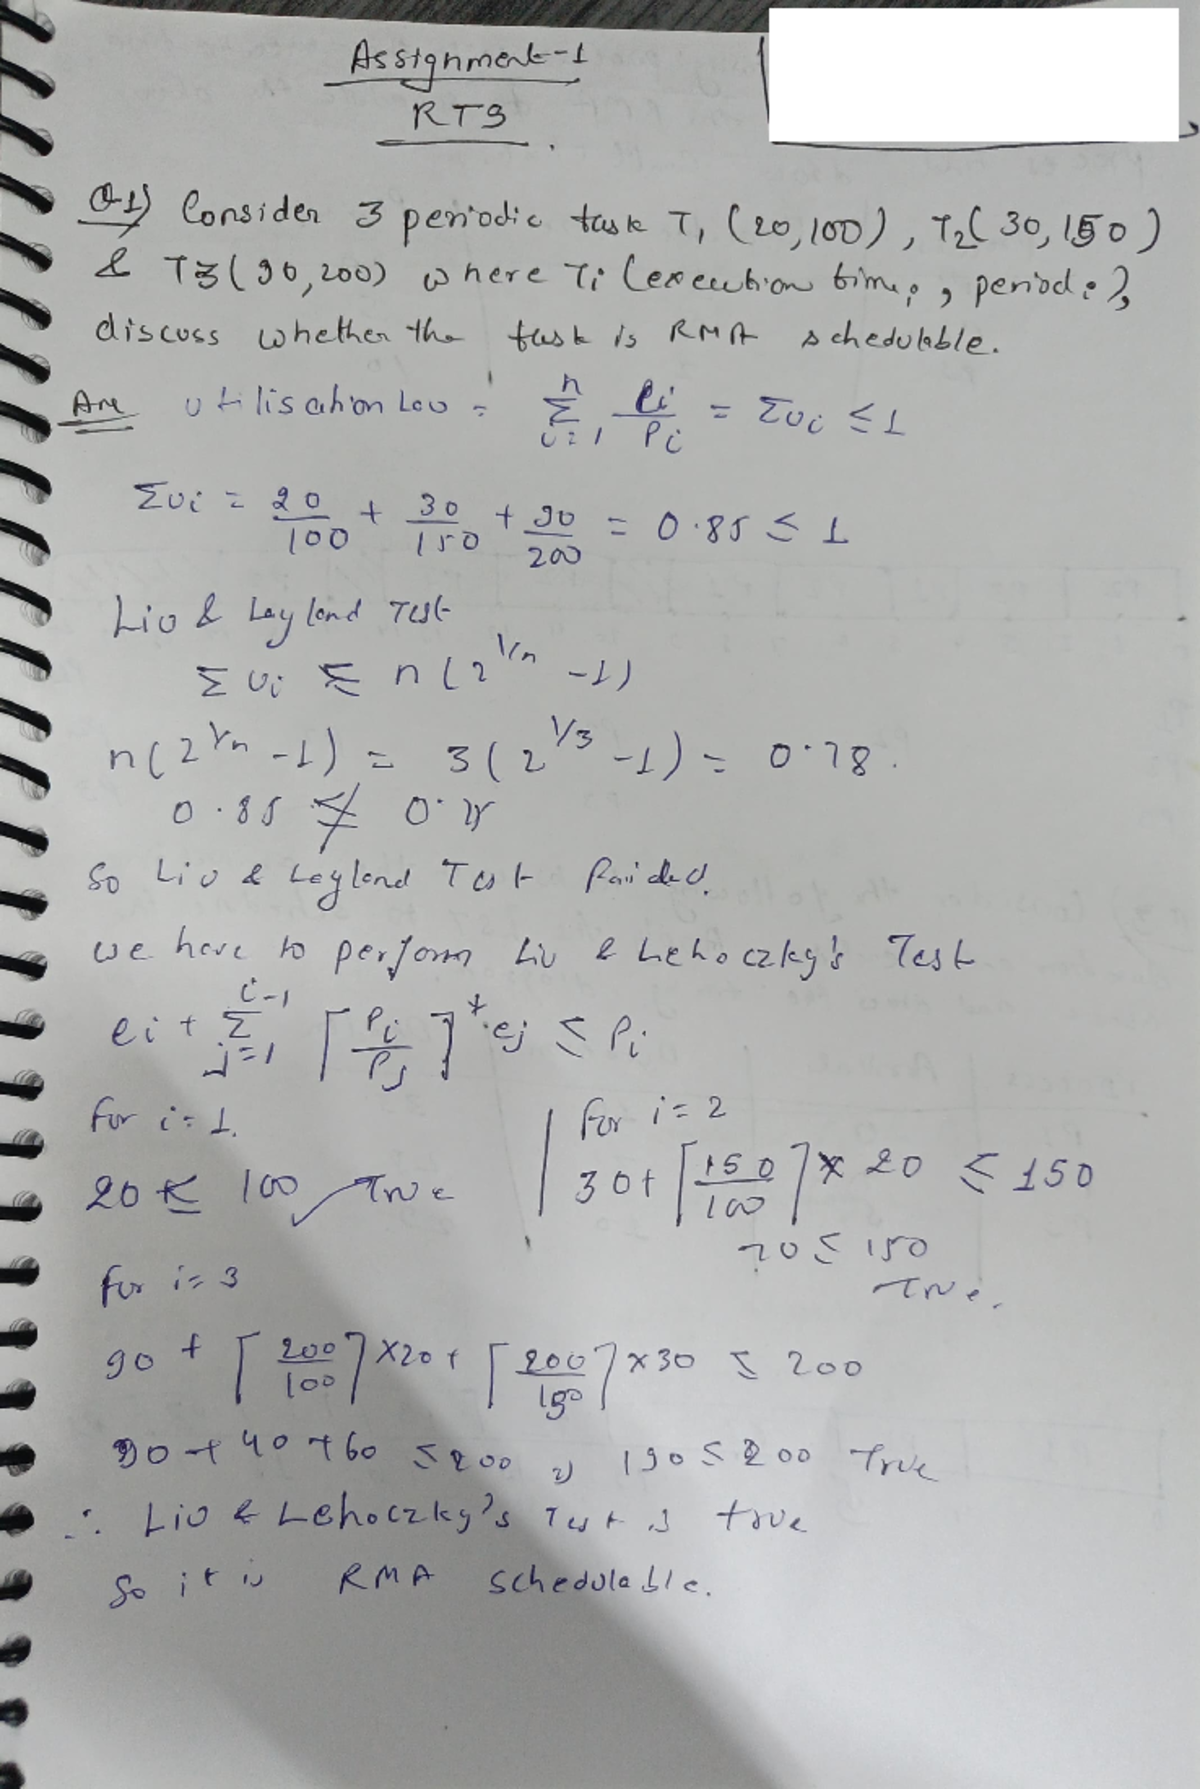 Assignment-1
RTS
Q-1) Consider 3 periodic task T1 (20,100), T2( 30, 150 )
& T3 ( 90, 200) where Ti (execution time i , period i ),
discuss whether the task is RMA schedulable.
Ans utilisation Low = n Σ i=1 ei/Pi = Σui ≤ 1
Σui = 20/100 + 30/150 + 90/200 = 0.85 ≤ 1
Liu & Layland Test
Σ ui ≤ n (2^1/n -1)
n(2^1/n -1) = 3 (2^1/3 -1) = 0.78.
0.85 ≰ 0.78
So Liu & Leyland Test
we have to perform Liu & Lehoczky's Test
ei + i-1 Σ j=1 ⌈Pi/Pj⌉ * ej ≤ Pi
for i = 1.
20 ≤ 100 ✓ True
for i = 2
30 + ⌈150/100⌉ * 20 ≤ 150
70 ≤ 150
True.
for i = 3
90 + ⌈200/100⌉ ×20 + ⌈200/150⌉ × 30 ≤ 200
90 + 40 + 60 ≤ 200 ⇒ 190 ≤ 200 True
∴ Liu & Lehoczky's Test is true
So it is RMA schedulable.